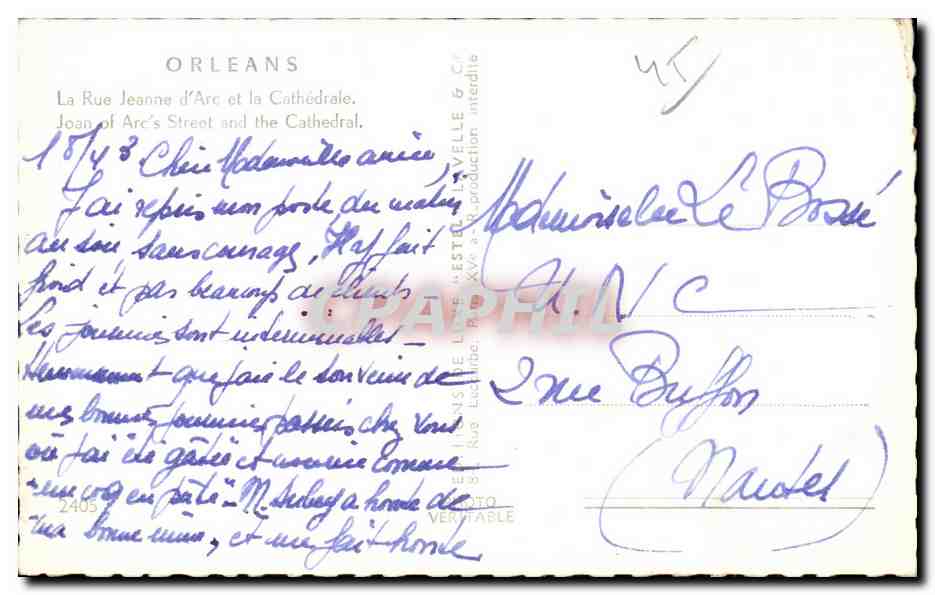 ORLEANS
La Rue Jeanne d'Arc et la Cathédrale.
Joan of Arc's Street and the Cathedral.
Chère Mademoiselle amie,
J'ai repris mon poste du matin
au soir, sans courage, Il y fait
froid et pas beaucoup de clients -
Les journées sont interminables -
Heureusement que j'ai le souvenir de
mes bonnes journées passées chez vous
où j'ai été gâtée et nourrie comme
"un coq en pâte" - M. a honte de
ma bonne mine, et me fait honte
2405
EDITIONS DE LUXE "ESTEL" LAVELLE & Cie
Paris XVe
production interdite
PHOTO
VERITABLE
CPARAMA
45
Mademoiselle Le Bossé
U. N C
2 rue Buffon
(Nantes)